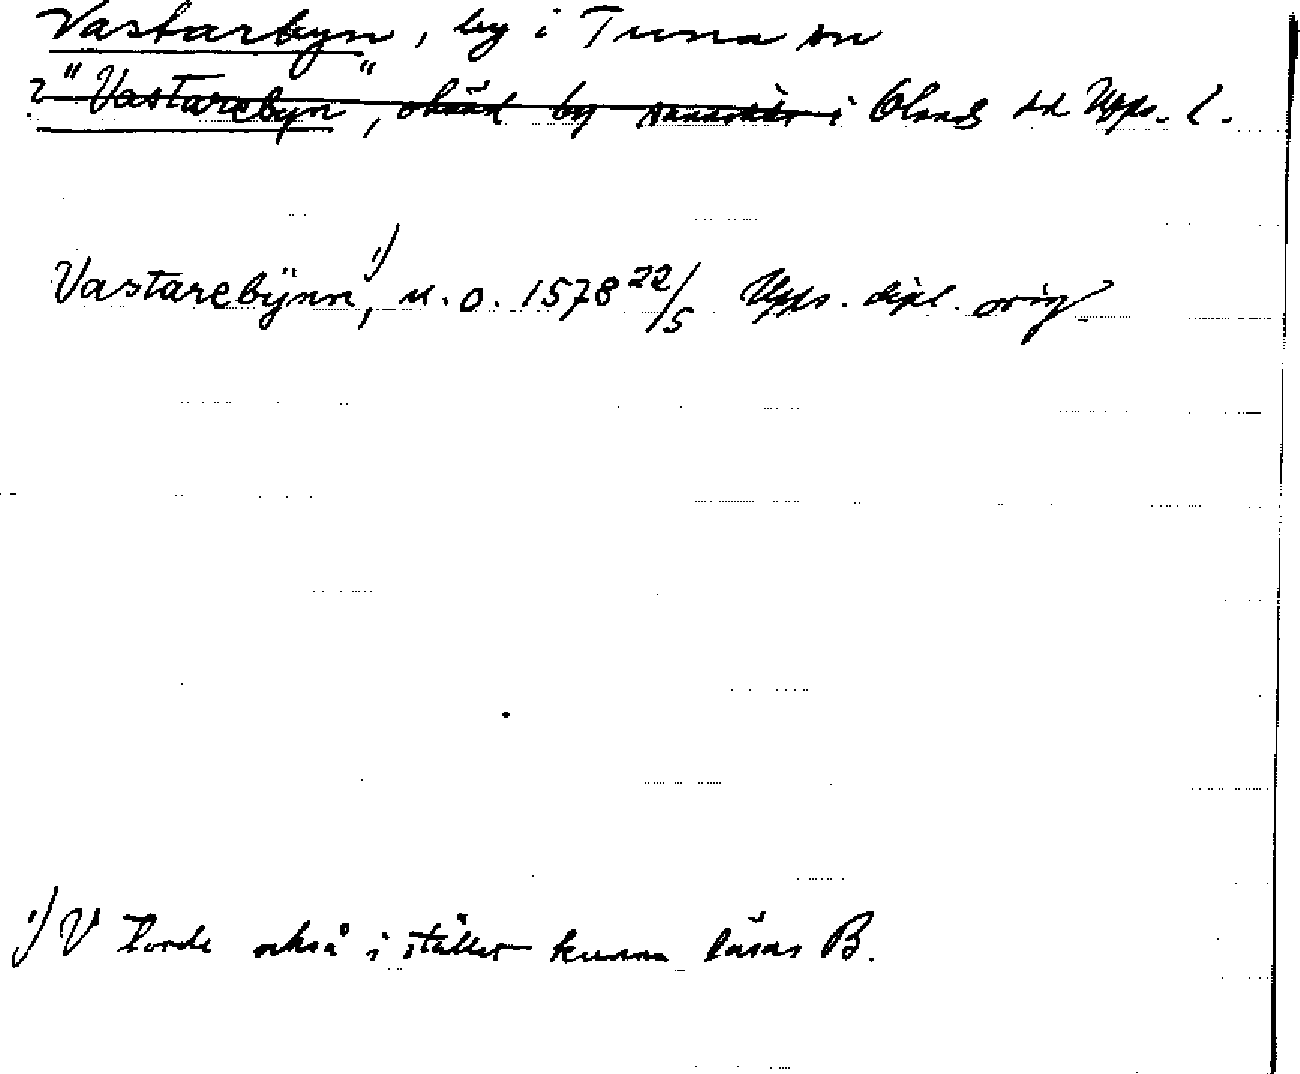 Vastarbyn, by i Tuna sn
? "Vastarebyn", okänd by i Olands hd Upps. l.
Vastarebÿnn, 1) u. o. 1578 22/5 Upps. dipl. orig
1) V torde också i stället kunna läsas B.